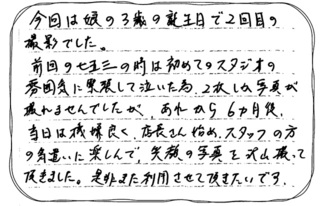 今回は娘の3歳の誕生日で2回目の
撮影でした。
前回の七五三の時は初めてのスタジオの
雰囲気に緊張して泣いた為、2枚しか写真が
撮れませんでしたが、あれから6カ月後、
当日は機嫌良く、店長さん始め、スタッフの方
の気遣いに楽しんで、笑顔の写真を沢山撮って
頂きました。是非また利用させて頂きたいです。